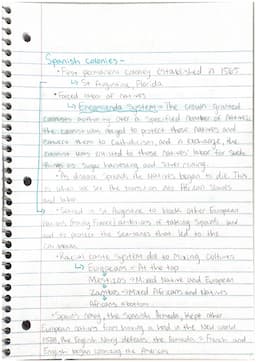 Spanish Colonies -
• First permanent colony established in 1565
↳ St Augustine, Florida
• Forced labor of natives
↳ Encomienda System = The crown granted
colonists authority over a specified number of natives
the colonist was obliged to protect those natives and
convert them to Catholicism, and in exchange, the
colonist was entitled to those natives' labor for such
things as sugar harvesting and silver mining.
• As disease spread, the Natives began to die. This
is when we see the transition into African slaves
and labor.
• Settled in St Augustine to block other European
nations (mainly France) ambitions of taking Spanish land
and to protect the sea-lanes that led to the
Caribbean.
• Racial caste system due to mixing cultures
↳ Europeans = At the top
Mestizos → Mixed Native and European
Zambos → Mixed Africans and Natives
Africans at bottom
• Spain's navy, the Spanish Armada, kept other
European nations from having a hold in the New World
1588, the English Navy defeats the Armada → French and
English began colonizing the Americas